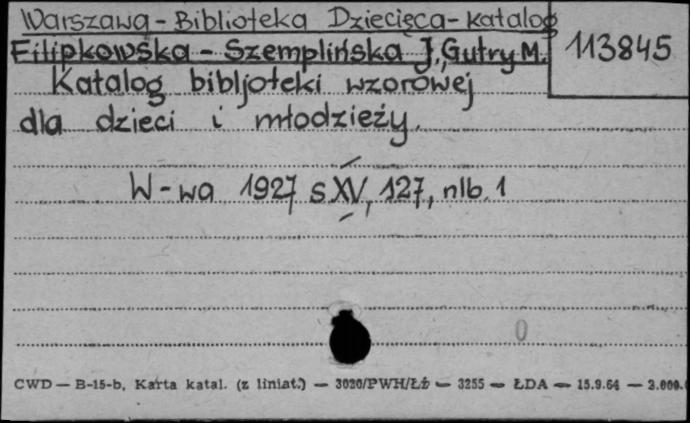 Warszawa - Biblioteka Dziecięca - katalog
Filipkowska - Szemplińska J., Gutry M.
113845
Katalog bibljoteki wzorowej
dla dzieci i młodzieży.
W-wa 1927 s XV, 127, nlb. 1
0
CWD — B-15-b. Karta katal. (z liniat.) — 3020/PWH/Łż — 3255 — ŁDA — 15.9.64 — 3.000.